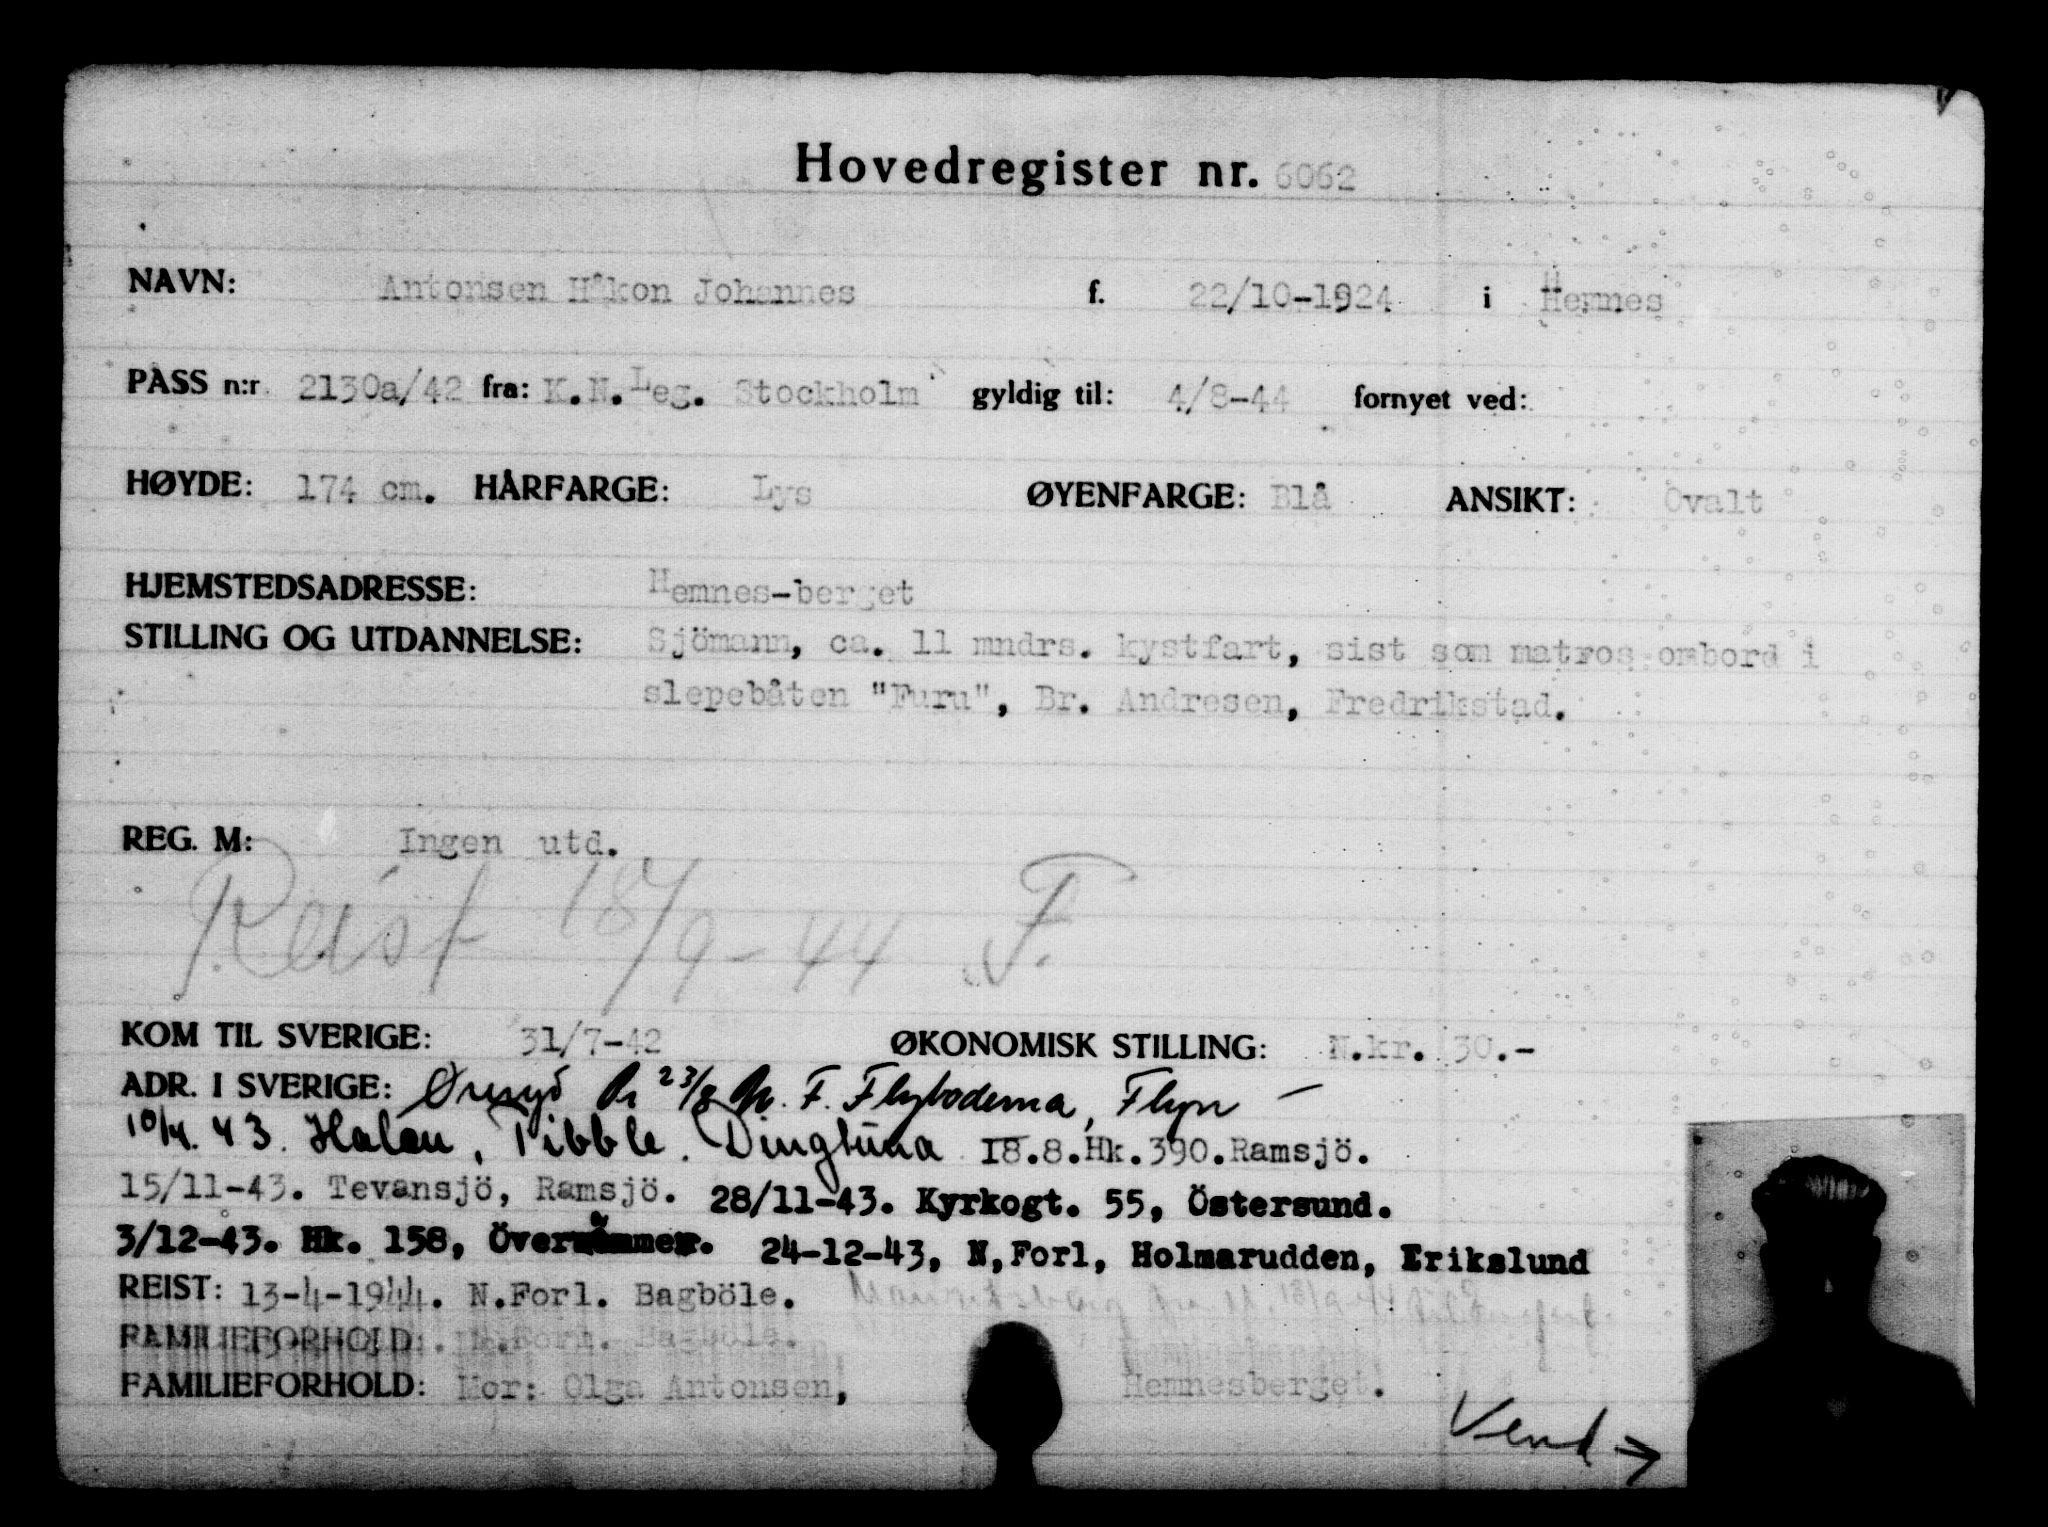 Hovedregister nr. 6062
NAVN: Antonsen Håkon Johannes f. 22/10-1924 i Hemnes
PASS n:r 2130a/42 fra: K.N.Leg. Stockholm gyldig til: 4/8-44 fornyet ved:
HØYDE: 174 cm. HÅRFARGE: Lys ØYENFARGE: Blå ANSIKT: Ovalt
HJEMSTEDSADRESSE: Hemnes-berget
STILLING OG UTDANNELSE: Sjömann, ca. 11 mndrs. kystfart, sist som matros ombord i
slepebåten "Furu", Br. Andresen, Fredrikstad.
REG. M: Ingen utd.
Reist 18/9-44 F.
KOM TIL SVERIGE: 31/7-42 ØKONOMISK STILLING: N.kr. 30.-
ADR. I SVERIGE: 23/8 F. Flybodema, Flyn
10/4. 43. Halen, Tibble. Dingtuna 18.8.Hk.390.Ramsjö.
15/11-43. Tevansjö, Ramsjö. 28/11-43. Kyrkogt. 55, Östersund.
3/12-43. Hk. 158, 24-12-43, N,Forl, Holmarudden, Erikslund
REIST: 13-4-1944. N.Forl. Bagböle. 18/9-44
FAMILIEFORHOLD: N.Forl. Bagböle.
Hemnesberget
FAMILIEFORHOLD: Mor: Olga Antonsen, Hemnesberget.
Vend →